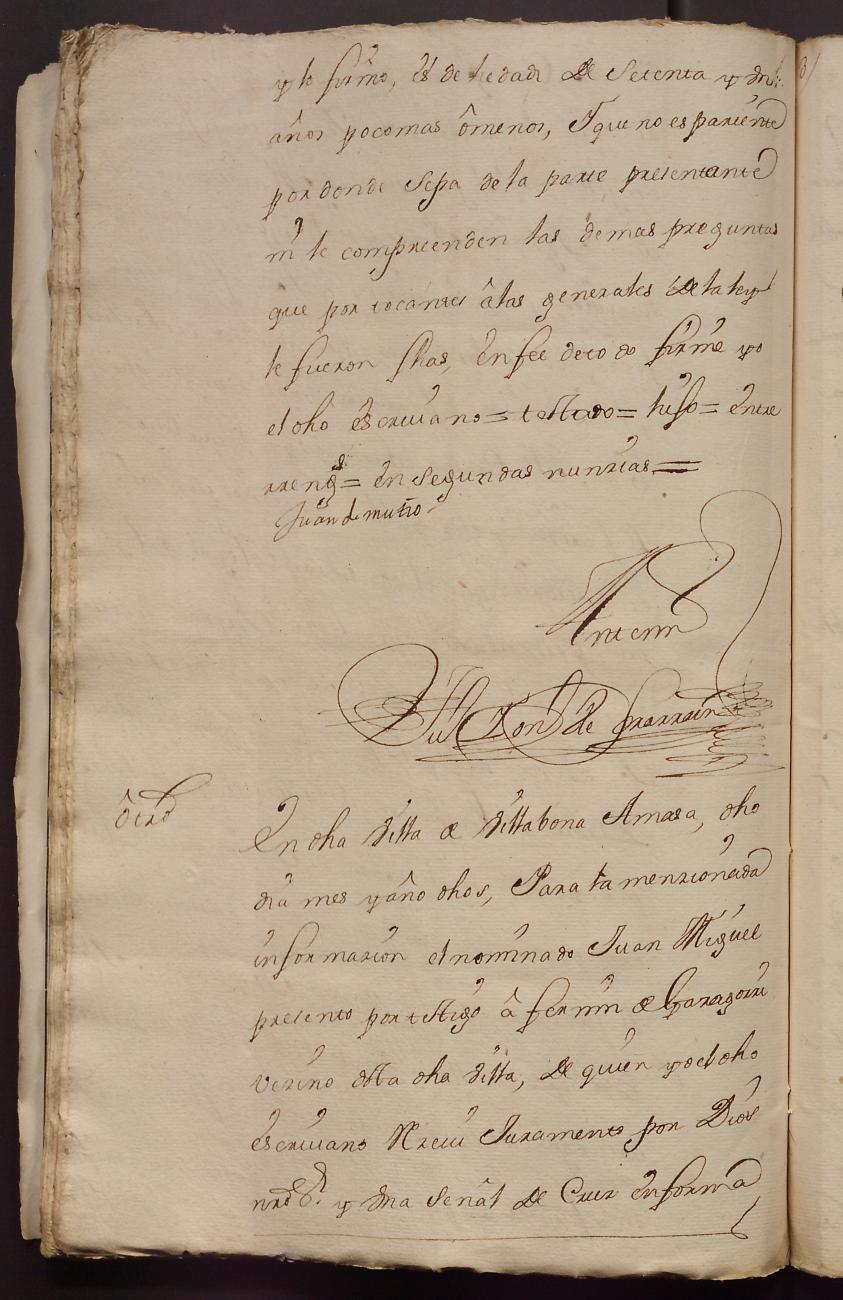 y lo firmo, es de hedad de Setenta y dos
años poco mas ô menos, Y que no es pariente
por donde Sepa de la parte presentante
ni le comprenden las demas preguntas
que por tocantes â las generales de la ley
le fueron fhas, En fee de to do firme yo
el dho escriuano = testado = hiso = entre
rreng.s = En Segundas nunzias =
Juan de mutio
Ante mi
de Yrarrain
ôtro
En dha Villa de Villabona Amasa, dho
dia mes y año dhos, Para la menzionada
informazion el nominado Juan Miguel
presento por testigo â fermin de Garagorri
vezino desta dha Villa, de quien yo el dho
escriuano Rreciui Juramento por Dios
nrô S.r y Vna Señal de Cruz en forma